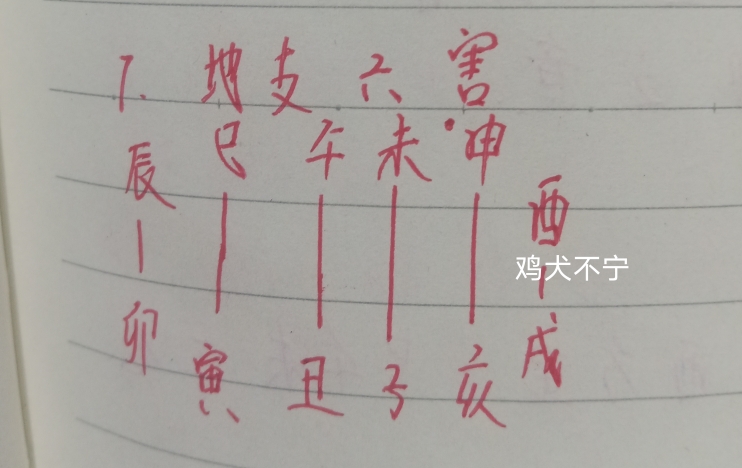 7. 地支六害
辰 巳 午 未 申 酉
鸡犬不宁
卯 寅 丑 子 亥 戌